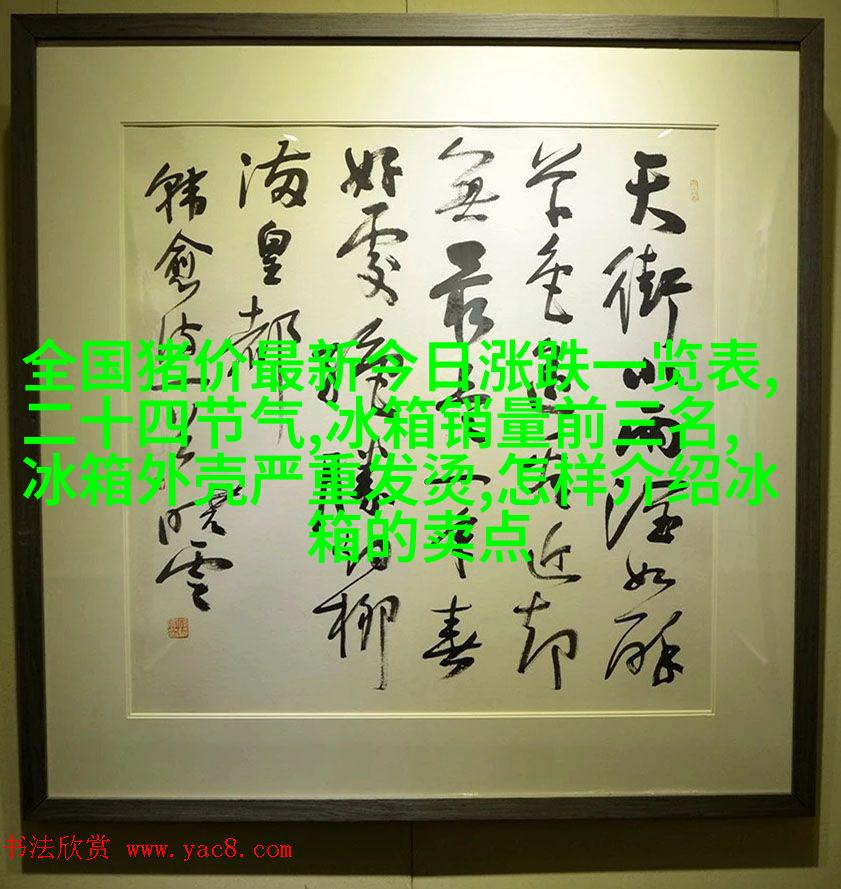 天街小雨润如酥
草色遥看近却
無最是一年春
好處绝勝烟柳
满皇都
韩愈诗
全国猪价最新今日涨跌一览表,
二十四节气,冰箱销量前三名,
冰箱外壳严重发烫,怎样介绍冰
箱的卖点
书法欣赏 www.yac8.com